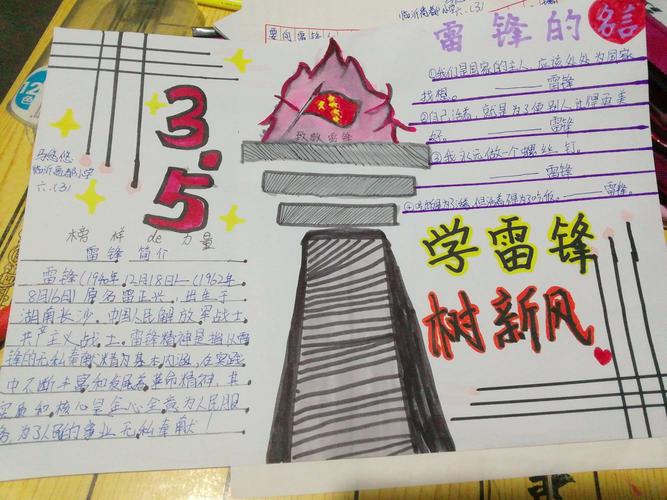 临沂商都小学
六.(3)
要向雷锋
雷锋的名言
①我们是国家的主人,应该处处为国家
找想。——雷锋
②自己活着,就是为了使别人过得更美
好。——雷锋
③我永远做一个螺丝钉。
——雷锋
④吃饭是为了活,但活着不是为了吃饭。——雷锋
致敬雷锋
3.5
马悠悠
临沂商都小学
六.(3)
榜样de力量
雷锋简介
雷锋(1940年12月18日—(1962年
8月16日)原名雷正兴,出生于
湖南长沙,中国人民解放军战士,
共产主义战士。雷锋精神是指以雷
锋的无私奉献精神为基本内涵,在实践
中不断丰富和发展着革命精神,其
实质和核心是全心全意为人民服
务,为了人民的事业无私奉献!
学雷锋
树新风
12
色